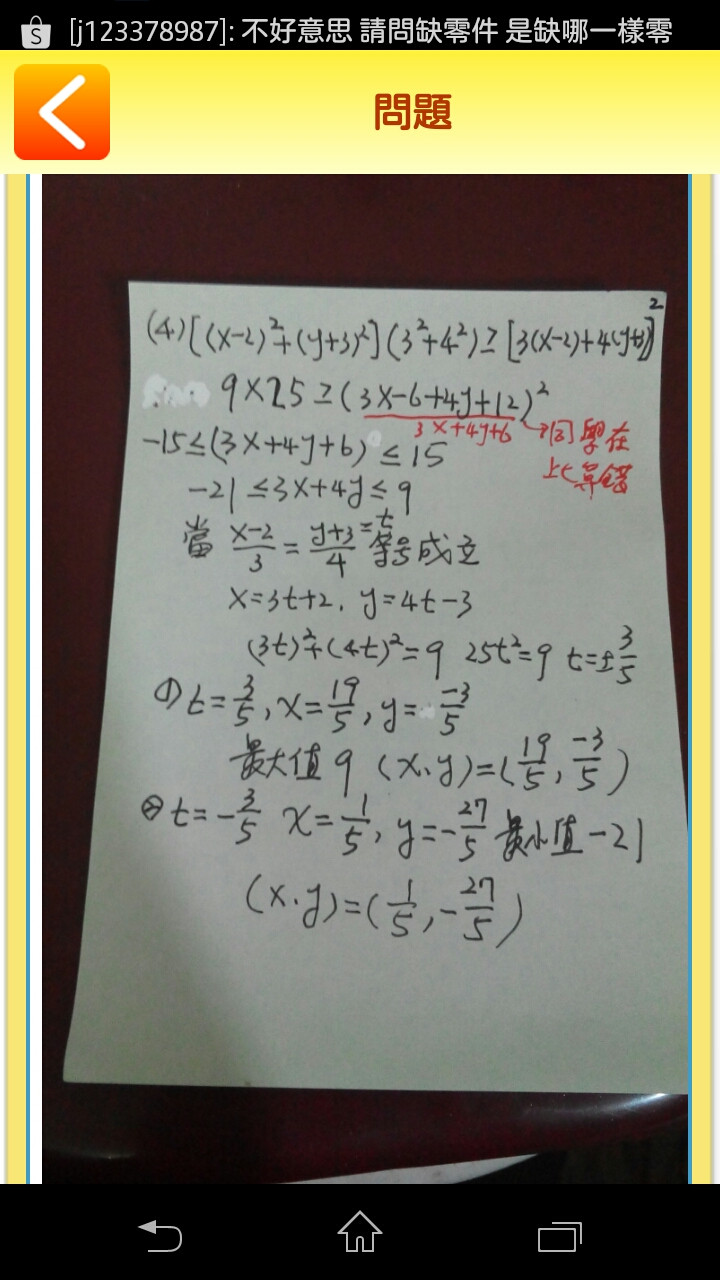 [j123378987]: 不好意思 請問缺零件 是缺哪一樣零
問題
(4)[(x-2)²+(y+3)²](3²+4²)≥[3(x-2)+4(y+3)]²
9×25≥(3x-6+4y+12)²
3x+4y+6
→同學在
上七算錯
-15≤(3x+4y+6)≤15
-21≤3x+4y≤9
當 (x-2)/3=(y+3)/4=t 等號成立
x=3t+2, y=4t-3
(3t)²+(4t)²=9 25t²=9 t=±3/5
① t=3/5, x=19/5, y=-3/5
最大值 9 (x,y)=(19/5, -3/5)
② t=-3/5 x=1/5, y=-27/5 最小值-21
(x,y)=(1/5, -27/5)